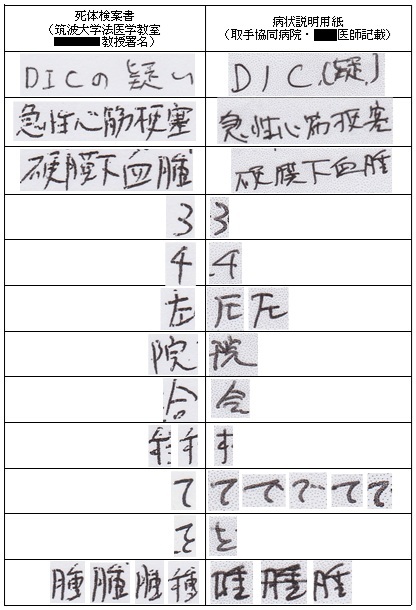 死体検案書 病状説明用紙
(筑波大学法医学教室 (取手協同病院・ 医師記載)
教授署名)
DICの疑い DIC(疑)
急性心筋梗塞 急性心筋梗塞
硬膜下血腫 硬膜下血腫
3 3
4 4
左 左左
院 院
合 合
て ててててて
を を
腫腫腫腫 腫腫腫